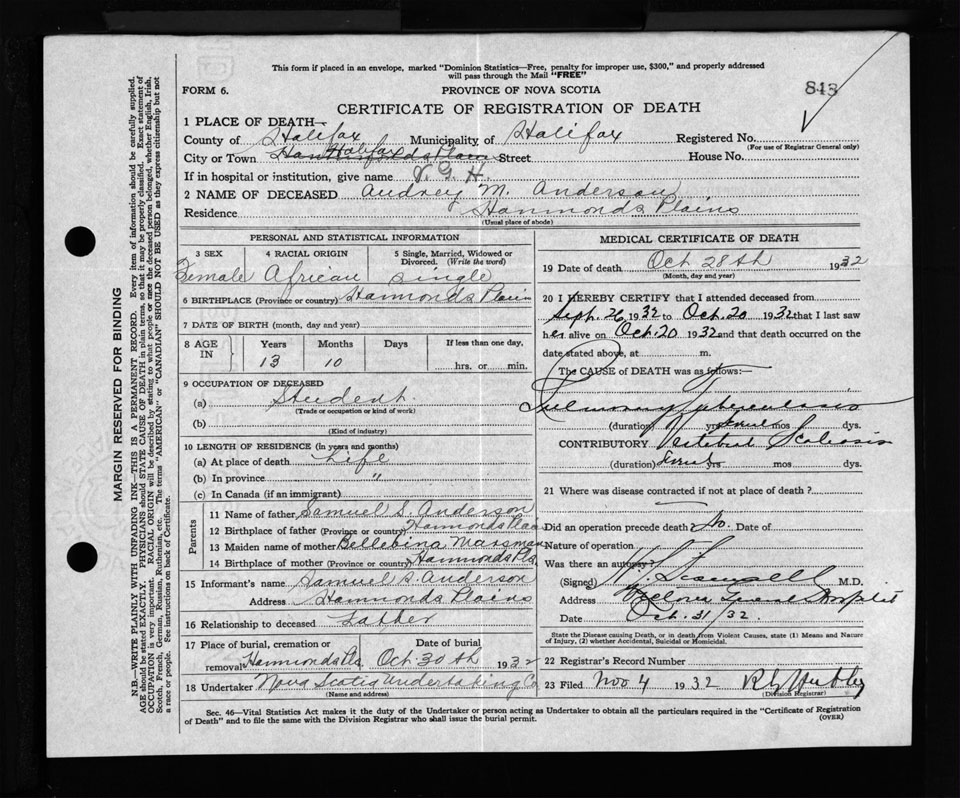 This form if placed in an envelope, marked "Dominion Statistics—Free, penalty for improper use, $300," and properly addressed
will pass through the Mail "FREE"
FORM 6.
PROVINCE OF NOVA SCOTIA
843
CERTIFICATE OF REGISTRATION OF DEATH
1 PLACE OF DEATH—
County of Halifax Municipality of Halifax Registered No.
(For use of Registrar General only)
City or Town Halifax Street House No.
If in hospital or institution, give name V. G. H.
2 NAME OF DECEASED Audrey M. Anderson
Residence Hammonds Plains
(Usual place of abode)
PERSONAL AND STATISTICAL INFORMATION
3 SEX 4 RACIAL ORIGIN 5 Single, Married, Widowed or
Divorced. (Write the word)
Female African Single
6 BIRTHPLACE (Province or country) Hammonds Plain
7 DATE OF BIRTH (month, day and year)
8 AGE IN Years Months Days If less than one day,
13 10 hrs. or min.
9 OCCUPATION OF DECEASED
(a) Student
(Trade or occupation or kind of work)
(b)
(Kind of industry)
10 LENGTH OF RESIDENCE (in years and months)
(a) At place of death Life
(b) In province "
(c) In Canada (if an immigrant)
Parents
11 Name of father Samuel S. Anderson
12 Birthplace of father (Province or country) Hammonds Plain
13 Maiden name of mother
14 Birthplace of mother (Province or country) Hammonds Pls
15 Informant's name Samuel S. Anderson
Address Hammonds Plains
16 Relationship to deceased Father
17 Place of burial, cremation or Date of burial
removal Hammonds Pls. Oct. 30th 1932
18 Undertaker Nova Scotia Undertaking Co
(Name and address)
MEDICAL CERTIFICATE OF DEATH
19 Date of death Oct 28th 1932
(Month, day and year)
20 I HEREBY CERTIFY that I attended deceased from
Sept. 26 1932 to Oct. 20 1932 that I last saw
her alive on Oct. 20 1932 and that death occurred on the
date stated above, at m.
The CAUSE of DEATH was as follows:—
Pulmonary Tuberculosis
(duration) yrs. mos dys.
CONTRIBUTORY Vertebral Scoliosis
(duration) yrs mos dys.
21 Where was disease contracted if not at place of death?
Did an operation precede death No. Date of
Nature of operation
Was there an autopsy?
(Signed) M.D.
Address Victoria General Hospital
Date Oct. 31/32.
State the Disease causing Death, or in death from Violent Causes, state (1) Means and Nature
of Injury, (2) whether Accidental, Suicidal or Homicidal.
22 Registrar's Record Number
23 Filed Nov 4 1932
(Division Registrar)
Sec. 46—Vital Statistics Act makes it the duty of the Undertaker or person acting as Undertaker to obtain all the particulars required in the "Certificate of Registration
of Death" and to file the same with the Division Registrar who shall issue the burial permit. (OVER)
MARGIN RESERVED FOR BINDING
N.B—WRITE PLAINLY WITH UNFADING INK—THIS IS A PERMANENT RECORD. Every item of information should be carefully supplied.
AGE should be stated EXACTLY. PHYSICIANS should STATE CAUSE OF DEATH in plain terms, so that it may be properly classified. Exact statement of
OCCUPATION is very important. RACIAL ORIGIN will be described by stating to what people or race the deceased person belonged, whether English, Irish,
Scotch, French, German, Russian, Ruthenian, etc. The terms "AMERICAN" or "CANADIAN" SHOULD NOT BE USED as they express citizenship but not
a race or people. See instructions on back of Certificate.